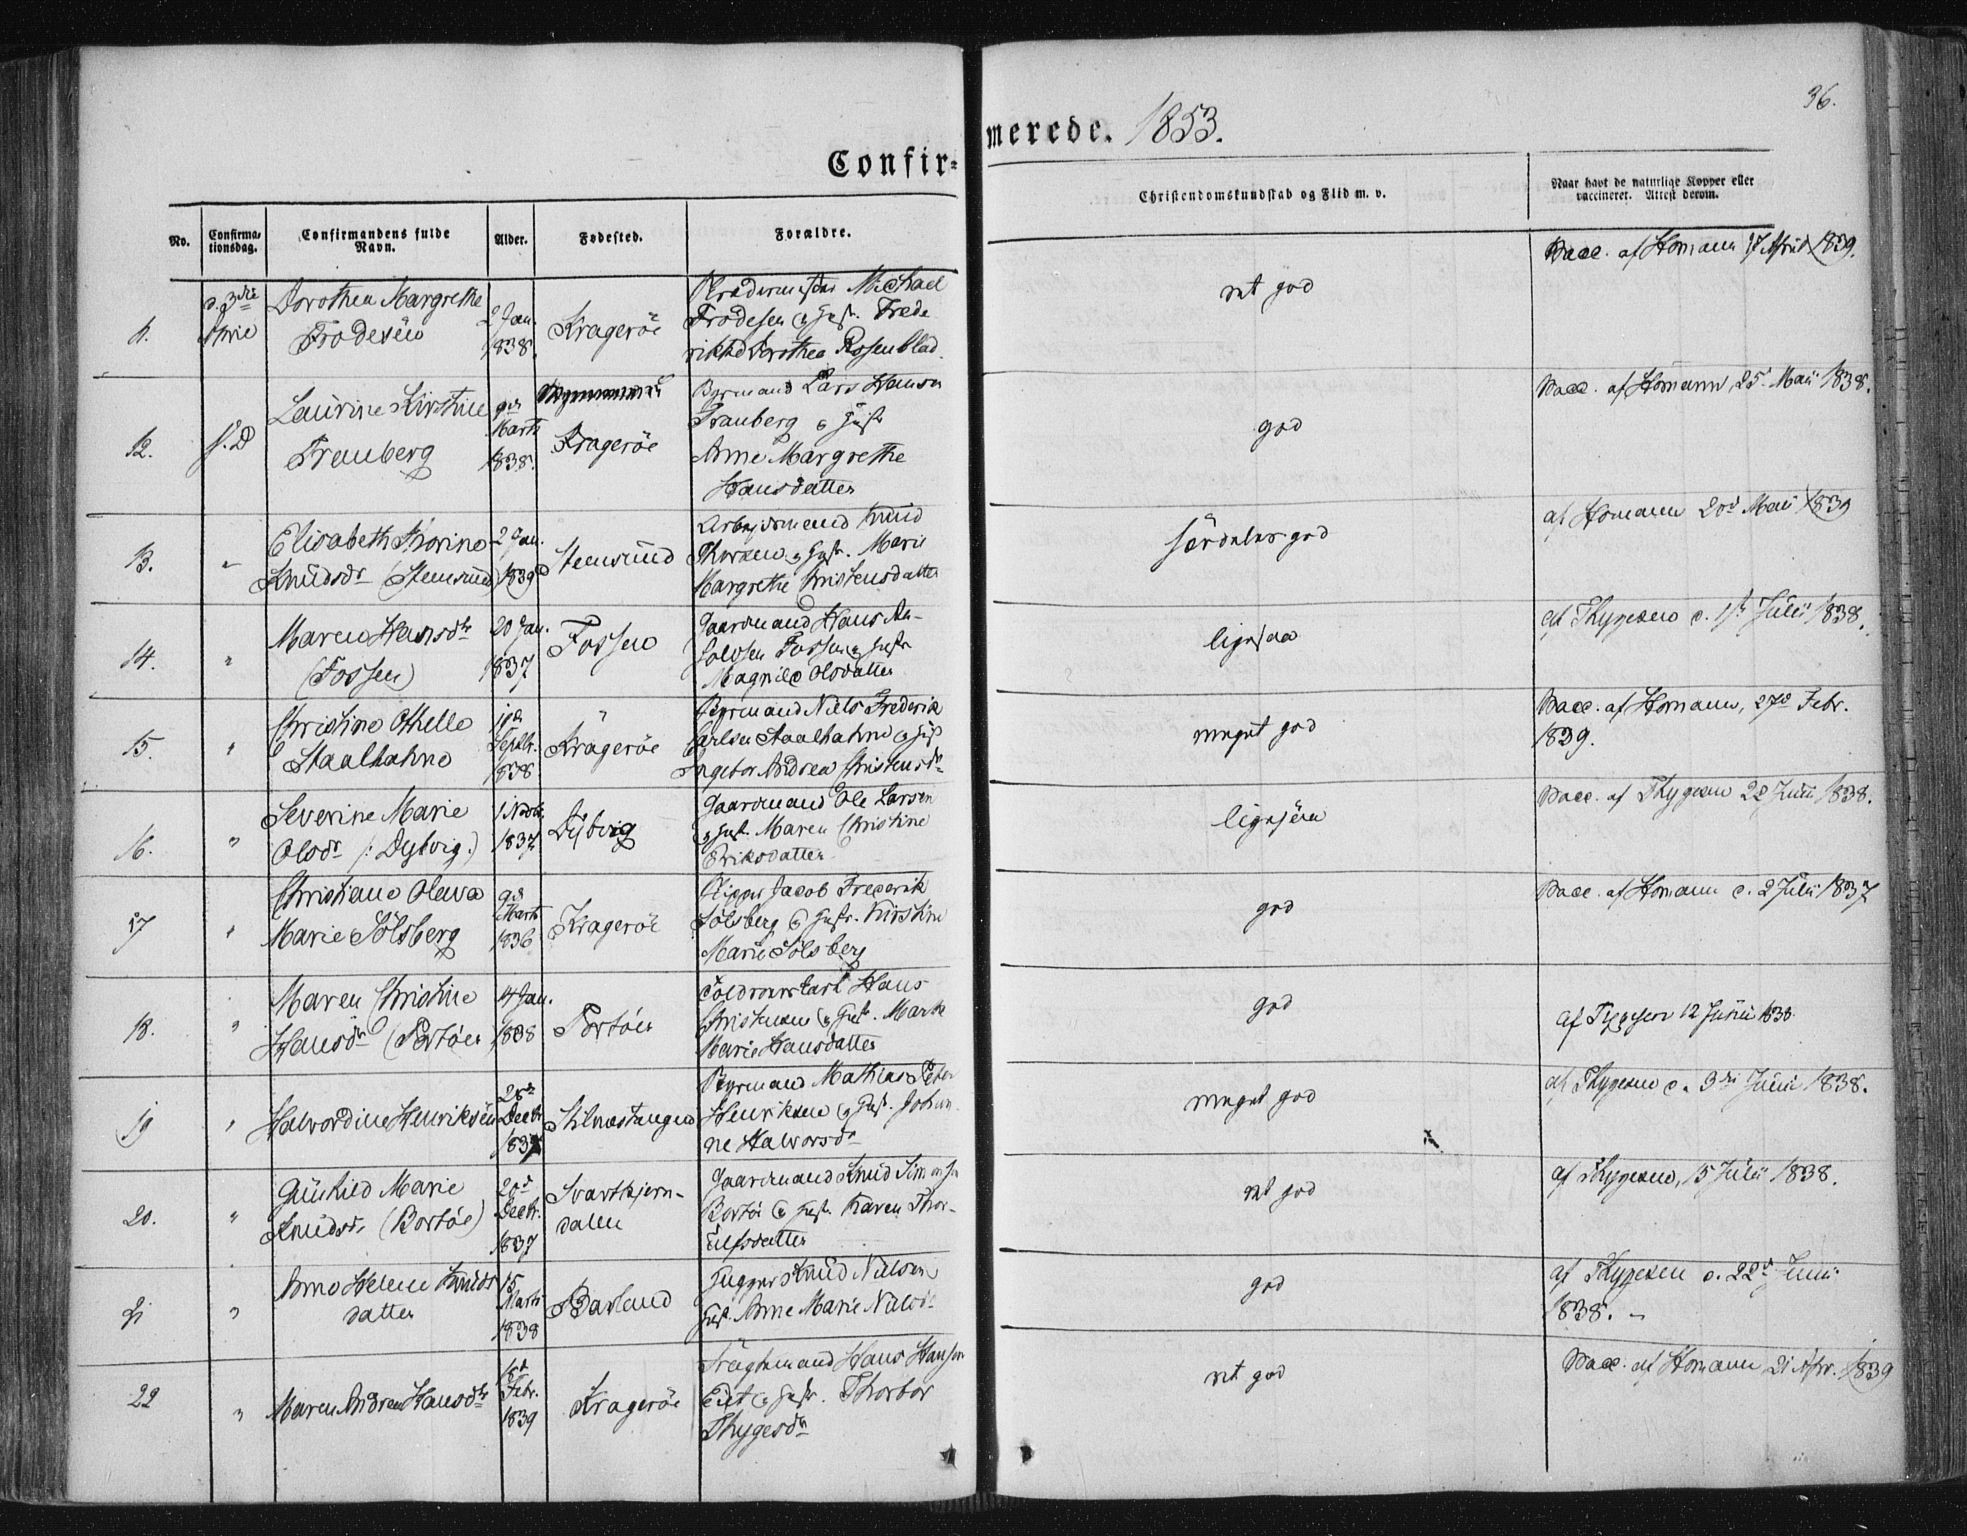 36.
Confir-
merede. 1853.
No.
Confirma-
tionsdag.
Confirmandens fulde
Navn.
Alder.
Fødested.
Forældre.
Christendomskundskab og Flid m. v.
Naar havt de naturlige Kopper eller
vaccineret. Attest derom.
d. 3die
Dorothea Margrethe
Frodesen
2 Jan.
1838.
Kragerøe
Michael
Frodesen og Hust. Frede
rikke Dorothea Rosenblad.
ret god
Vacc. af Homann 17 April 1839.
12.
s. D
Laurine Kirstine
Franberg
9de
Marts
1838.
Kragerøe
Lars Hansen
Franberg og Hust
Anne Margrethe
Hansdatter
god
Vacc. af Homann, 25. Mai 1838.
13.
"
Elisabeth Thorine
Knudsdr (Stensund)
2 Jan.
1839
Stensund
Arbejdsmand Knud
og Hust. Marie
Margrethe Christensdatter
særdeles god
af Homann 20de Mai 1839
14.
"
Maren Hansdr
(Fossen)
20 Jan.
1837
Fossen
Gaardmand Hans An-
Fossen og Hustr
Magnild Olsdatter
ligesaa
af Thygesen d. 1ste Julii 1838.
15.
"
Christine Othelie
Staalhahne
Septbr.
1838
"
Kragerøe
Styrmand Niels Frederik
Carlsen Staalhahne og Hust
Ingebor Andrea Christensdr
meget god
Vacc. af Homann, 27de Febr.
1839.
16.
"
Severine Marie
Olsdr (: Dybvig.)
1 Novbr.
1837
Dybvig
Gaardmand Ole Larsen
og Hust. Maren Christine
Eriksdatter
Vacc. af Thygesen 28 Junii 1838.
17
"
Christiane Olava
Marie Sölsberg
9de
Marts
1836
Kragerøe
Skipper Jacob Frederik
Sölsberg og Hustr. Kirstine
Marie Sölsberg
god
Vacc. af Homann d. 2 Julii 1837
18.
"
Maren Christine
Hansdr (Portöen
14 Jan.
1838
Portöen
Hans
Christensen og Hust. Marthe
Marie Hansdatter
god
af Thygesen 12 Junii 1838.
19
"
Halvordine Henriksen
28de
Decbr
1837
Stilnestangen
Styrmand Mathias Peter
Henriksen og Hust. Johan
ne Halvorsdr
meget god
af Thygesen d. 3die Junii 1838.
20.
"
Gunhild Marie
Knudsdr. (Bortöe)
20de
Decbr.
1837
Svartkjern-
dalen
Gaardmand Knud Simonsen
Bortöe og Hust. Karen Thor-
ulfsdatter
ret god
af Thygesen, 15 Julii 1838.
21
"
Anne Helene Knuds
datter
15
Marts
1838
Barland
Knud Nielsen
Hust. Anne Marie Nielsdr
god
af Thygesen d. 22de Junii
1838. -
22
"
Maren Andrea Hansdr
Febr.
1839
Kragerøe
Hans Hansen
og Hustr. Thorbor
Thygesdr
ret god
Vacc. af Homann 21 Apr. 1839